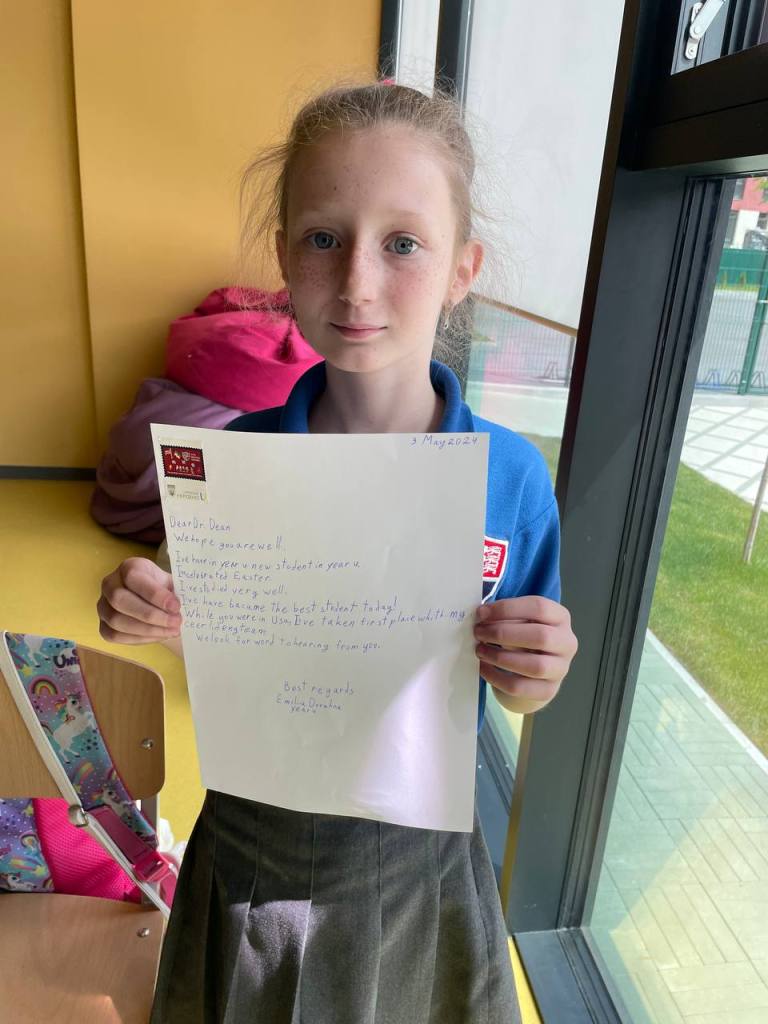 3 May 2024
Dear Dr. Dean
We hope you are well.
I've have in year 4 new student in year 4.
I've studied very well.
I've have became the best student today!
While you were in Usa, I've taken first place whith my
team
We look for word to hearing from you.
Best regards
Emilia
year 4